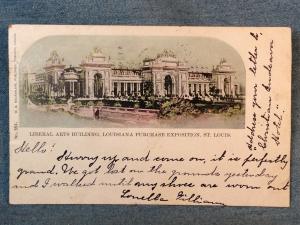 No. 261.
LIBERAL ARTS BUILDING, LOUISIANA PURCHASE EXPOSITION, ST. LOUIS.
Hello!
Hurry up and come on, it is perfectly
grand. We got out on the grounds yesterday
and I walked until my shoes are worn out
Louella
Address your letter to
Christian Endeavor
Hotel.